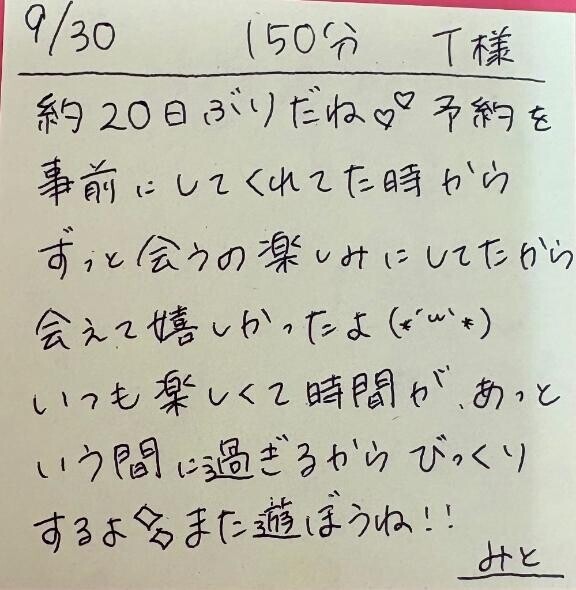 9/30 150分 T様
約20日ぶりだね♡♡ 予約を
事前にしてくれてた時から
ずっと会うの楽しみにしてたから
会えて嬉しかったよ(*´ω`*)
いつも楽しくて時間が、あっと
いう間に過ぎるからびっくり
するよ✧✧また遊ぼうね!!
みと